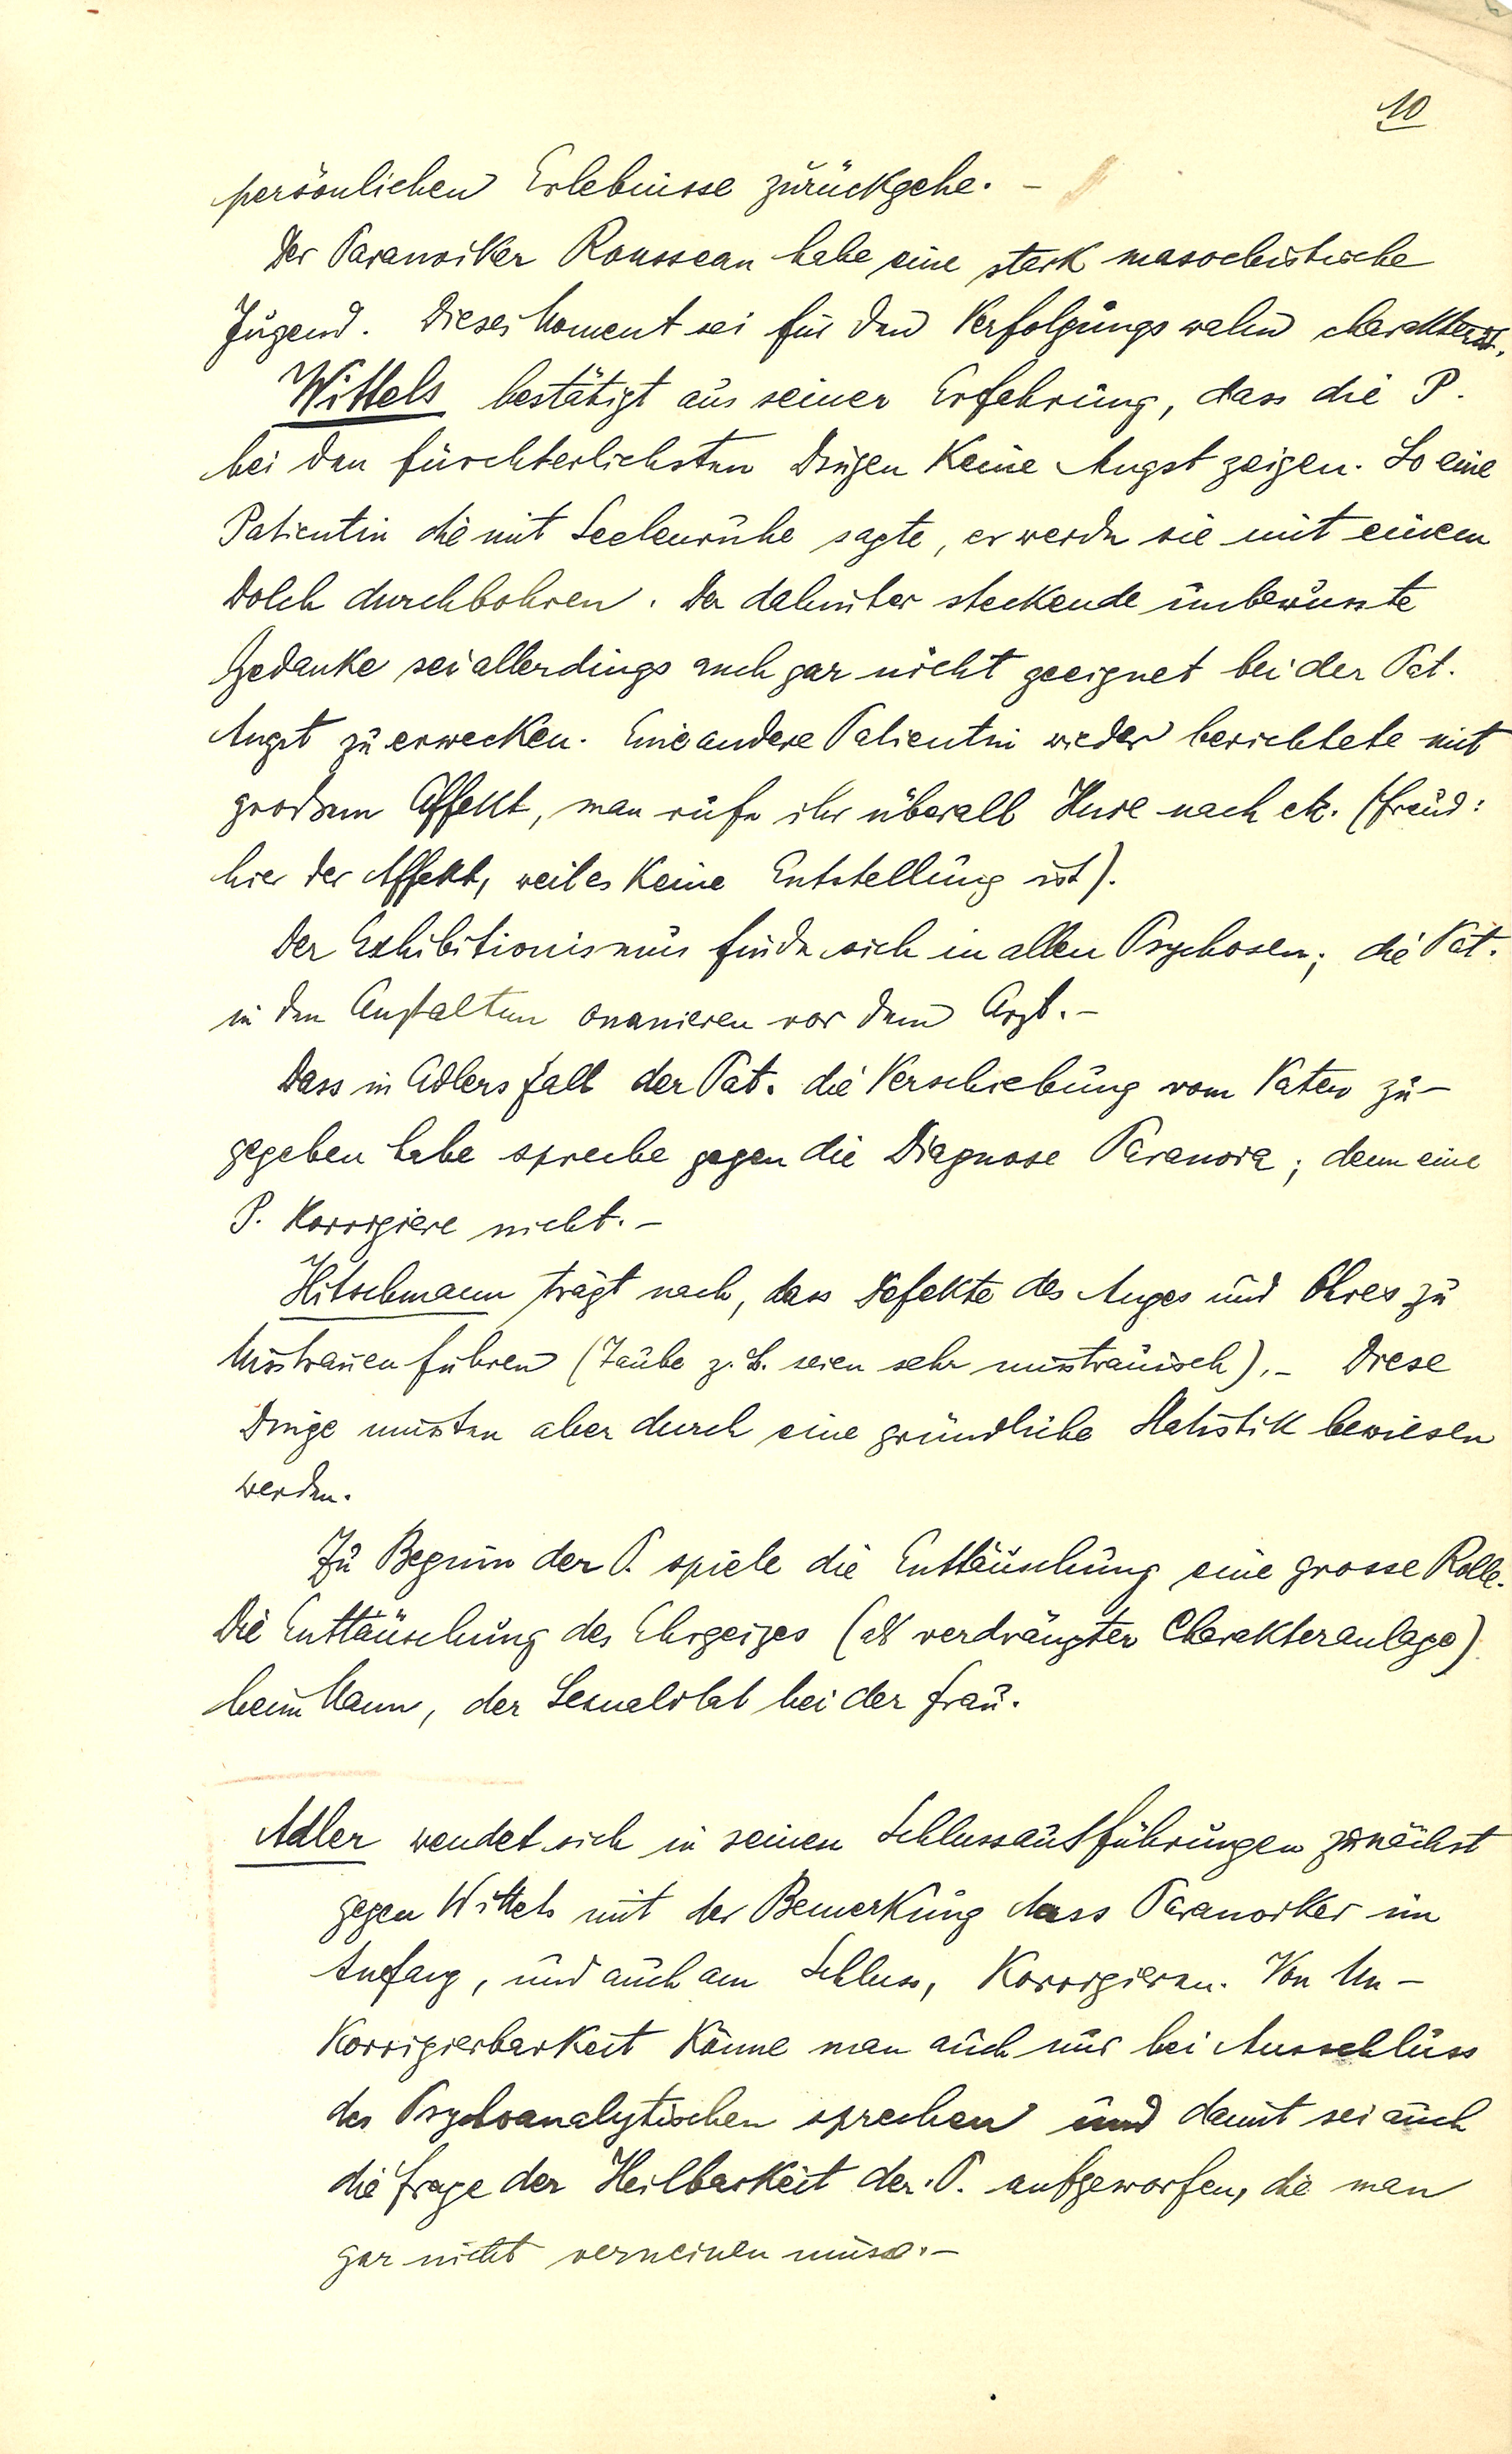 10
persönlichen Erlebnisse zurückgehe. –
Der Paranoiker Rousseau habe eine stark masochistische
Jugend. Dieses Moment sei für den Verfolgungswahn charakterist.
Wittels bestätigt aus seiner Erfahrung, dass die P.
bei den fürchterlichsten Dingen keine Angst zeigen. So eine
Patientin die mit Seelenruhe sagte, er werde sie mit einem
Dolch durchbohren. Der dahinter steckende unbewusste
Gedanke sei allerdings auch gar nicht geeignet bei der Pat.
Angst zu erwecken. Eine andere Patientin wieder berichtete mit
großem Affekt, man rufe ihr überall Hure nach etc. (Freud:
hier der Affekt, weil es keine Entstellung ist).
Der Exhibitionismus finde sich in allen Psychosen; die Pat.
in den Anstalten onanieren vor dem Arzt. –
Dass in Adlers Fall der Pat. die Verschiebung vom Vater zu-
gegeben habe spreche gegen die Diagnose Paranoia; denn eine
P. korrigiere nicht. –
Hitschmann trägt nach, dass Defekte des Auges und Ohres zu
Misstrauen führen (Taube z. B. seien sehr misstrauisch). – Diese
Dinge müssten aber durch eine gründliche Statistik bewiesen
werden.
Zu Beginn der P. spiele die Enttäuschung eine grosse Rolle.
Die Enttäuschung des Ehrgeizes (als verdrängter Charakteranlage)
beim Mann, der Sexualität bei der Frau.
Adler wendet sich in seinen Schlussausführungen zunächst
gegen Wittels mit der Bemerkung dass Paranoiker im
Anfang, und auch am Schluss, korrigieren. Von Un-
korrigierbarkeit könne man auch nur bei Ausschluss
des Psychoanalytischen sprechen und damit sei auch
die Frage der Heilbarkeit der P. aufgeworfen, die man
gar nicht verneinen müsse. –